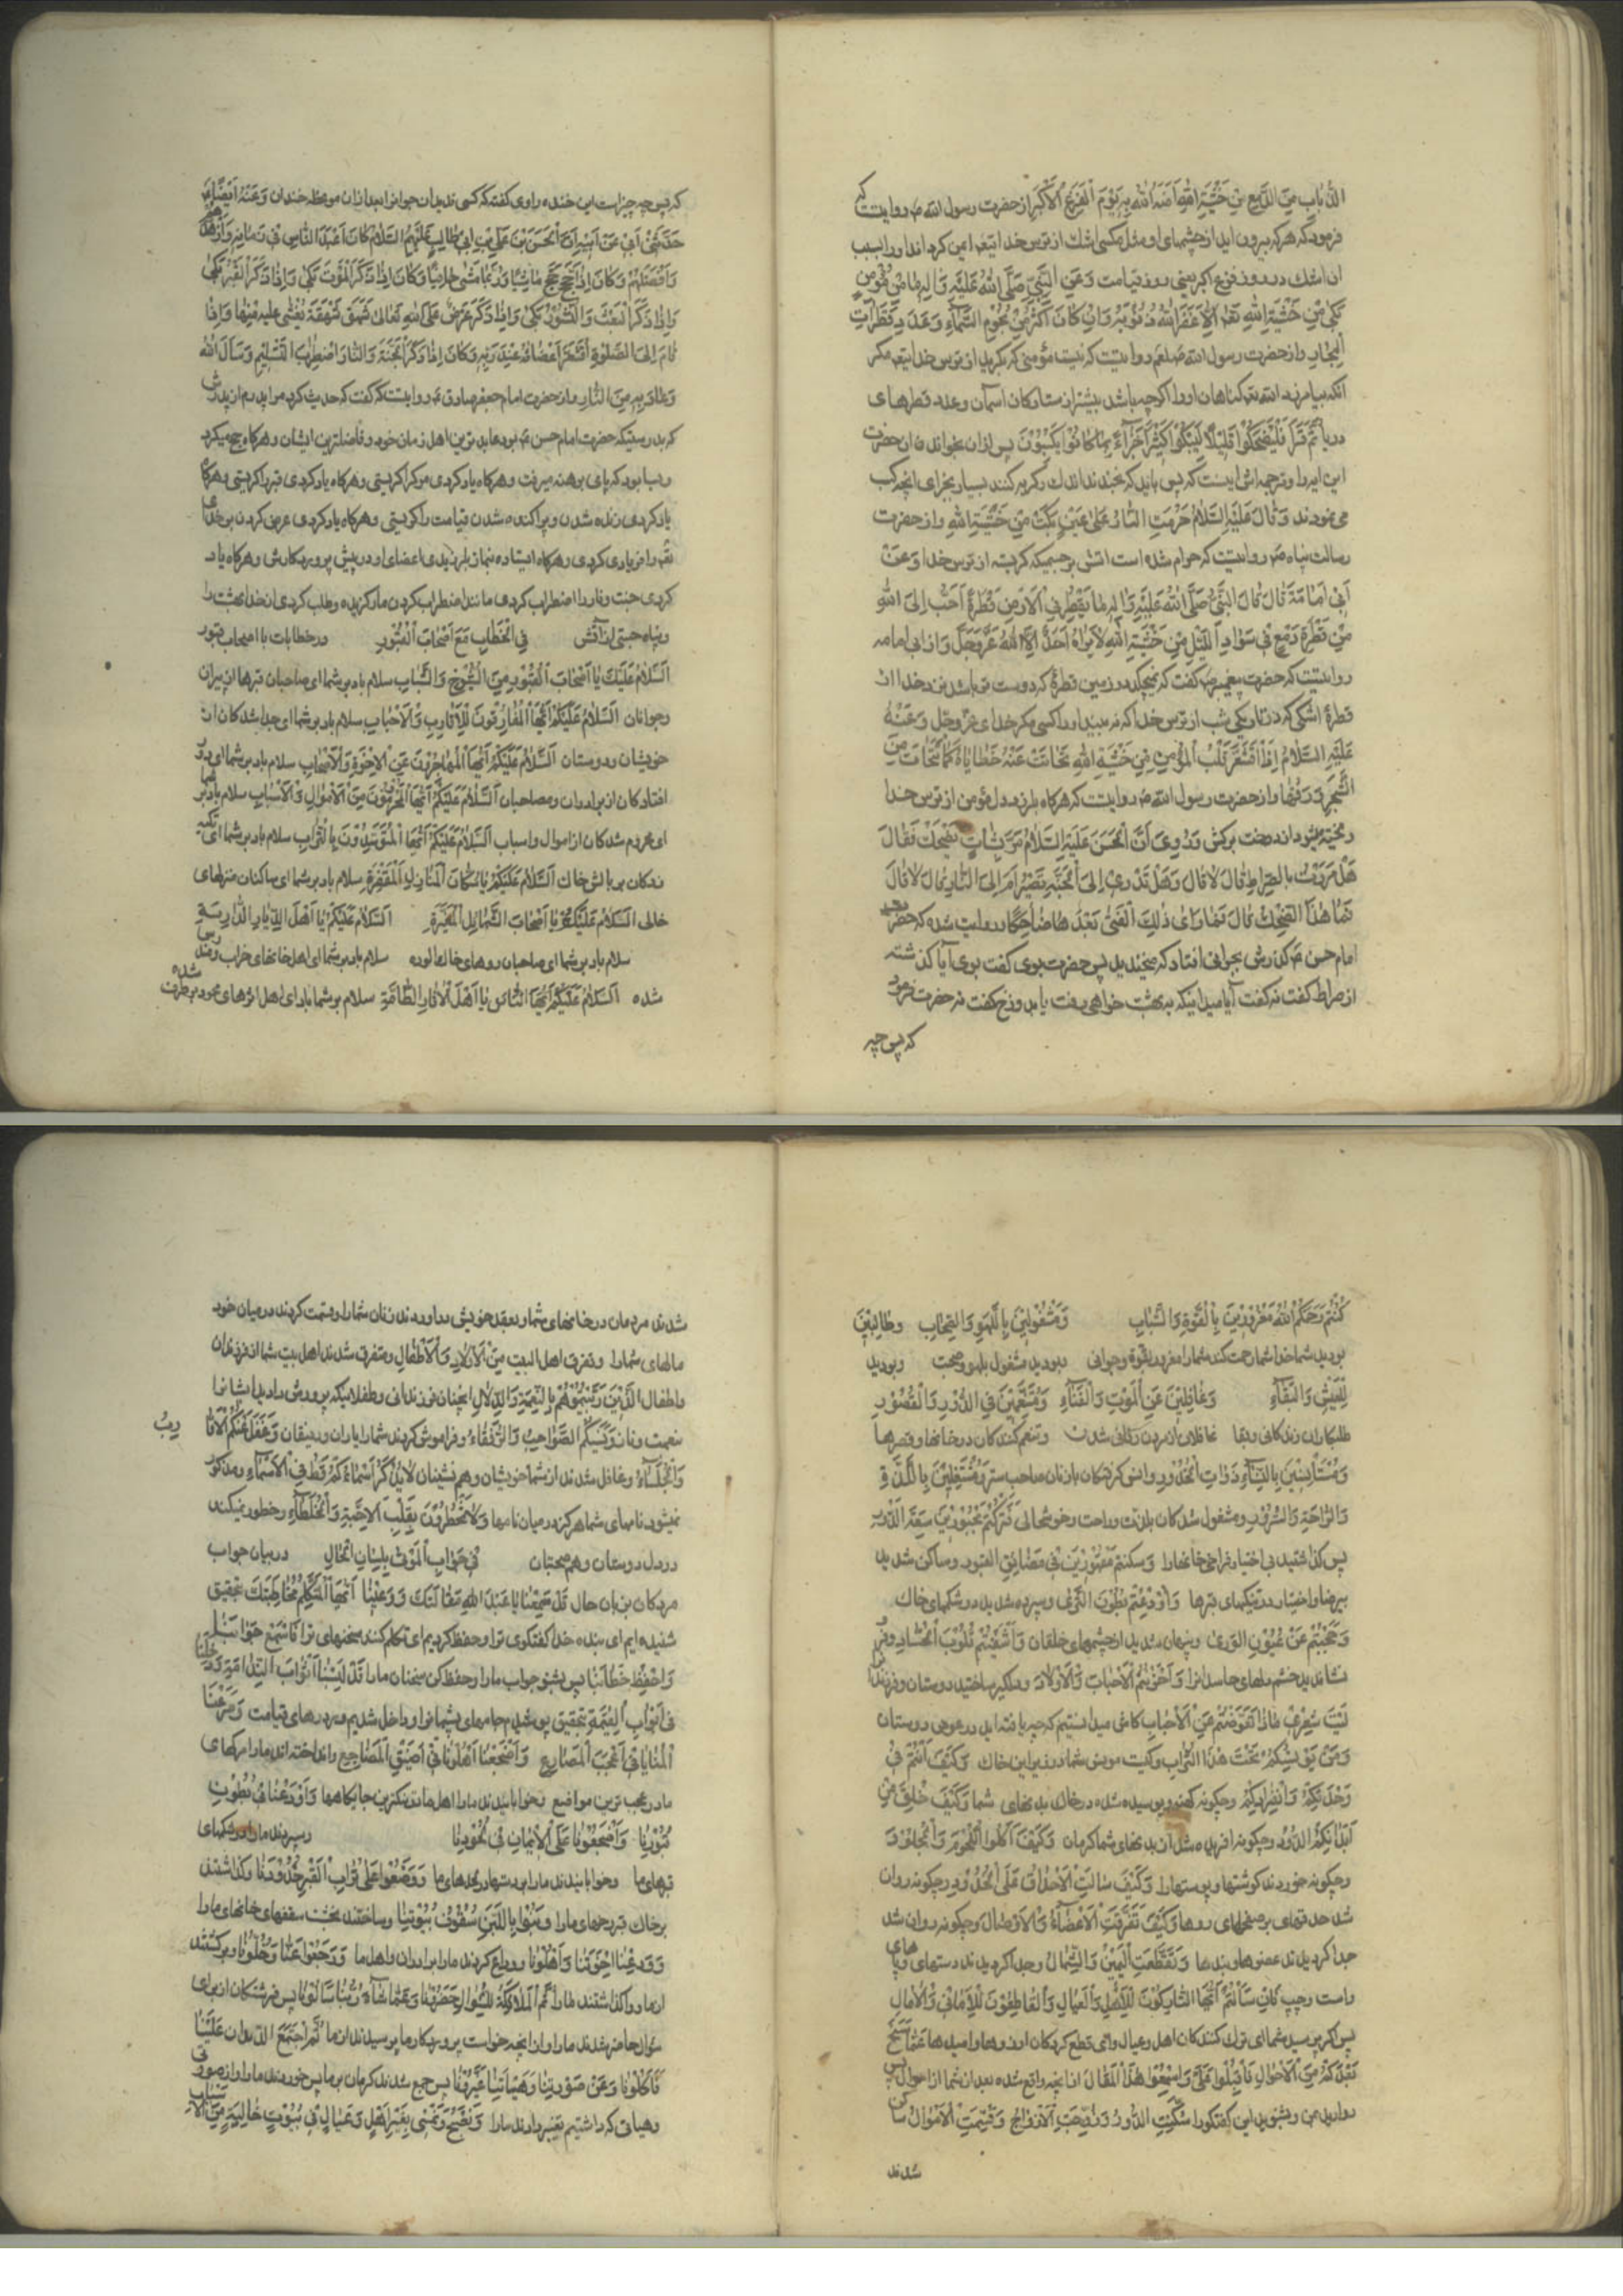 الذباب من الدمع من خشية الله آمنه الله به يوم الفزع الاكبر از حضرت رسول الله ص روایتست که
فرمود که هر که بیرون اید از چشمهای او مثل مکسی اشک از ترس خدا ایمن کرداند او را بسبب
ان اشک در روز فزع اکبر یعنی روز قیامت وعن النبي صلى الله عليه واله ما من مؤمن
بكى من خشية الله تعالى الا غفر الله ذنوبه وان كان اكثر من نجوم السماء وعدد قطرات
البحار و از حضرت رسول الله صلعم روایتست که نیست مؤمنی که بکرید از ترس خدا مکر
انکه بیامرزد الله کناهان او را اکر چه باشد بیشتر از ستارکان اسمان وعدد قطرهای
دریا ثم قرأ فليضحكوا قليلا وليبكوا كثيرا جزاء بما كانوا يكسبون پس از ان بخواند ان حضرت
این ایه را و ترجمه اش اینست که پس باید که بخندند اندک و کریه کنند بسیار بجزای انچه کسب
می نمودند وقال عليه السلام حرمت النار على عين بكت من خشية الله و از حضرت
رسالت پناه ص روایتست که حرام شده است اتش بر چشمیکه کریسته از ترس خدا وعن
ابي امامة قال قال النبي صلى الله عليه واله ما يقطر في الارض قطرة احب الى الله
من قطرة دمع في سواد الليل من خشية الله لا يراه احد الا الله عز وجل و از ابی امامه
روایتست که حضرت پیغمبر ص کفت که نمیچکد در زمین قطرۀ که دوست تر باشد نزد خدا از
قطرۀ اشکی که در تاریکی شب از ترس خدا که نه بیند او را کسی مکر خدای عز وجل وعنه
عليه السلام اذا اقشعر قلب المؤمن من خشية الله تحاتت عنه خطاياه كما تتحات من
الشجر ورقها و از حضرت رسول الله ص روایتست که هر کاه بلرزد دل مؤمن از ترس خدا
ریخته میشود از درخت برکش وروي ان الحسن عليه السلام مر بشاب يضحك فقال
هل مررت بالصراط قال لا قال وهل تدري الى الجنة تصير ام الى النار قال لا قال
فما هذا الضحك قال فما رأى ذلك الفتى بعدها ضاحكا روایت شده که حضرت
امام حسن ع کذرش بجوانی افتاد که میخندید پس حضرت بوی کفت بوی آیا کذشته
از صراط کفت نه کفت آیا میدانیکه به بهشت خواهی رفت یا بدوزخ کفت نه حضرت فرمود
که پس چه
که پس چه چیز است این خنده راوی کفته که کسی ندید ان جوانرا بعد از ان موعظه خندان وعنه ايضا
حدثني ابي عن ابيه ان الحسن بن علي بن ابي طالب عليهم السلام كان اعبد الناس في زمانه وازهدهم
وافضلهم وكان اذا حج حج ماشيا وربما مشى حافيا وكان اذا ذكر الموت بكى واذا ذكر القبر بكى
واذا ذكر البعث والنشور بكى واذا ذكر عرضه على الله تعالى شهق شهقة يغشى عليه منها واذا
قام الى الصلوة اقشعر اعضائه عند ربه وكان اذا ذكر الجنة والنار اضطرب السليم وسأل الله
وعاذ به من النار و از حضرت امام جعفر صادق ع روایتست که کفت که حدیث کرد مرا پدرم از پدرش
که بدرستیکه حضرت امام حسن ع بود عابدترین اهل زمان خود و فاضلترین ایشان و هر کاه حج میکرد
و بسا بود که پای برهنه میرفت و هر کاه یاد کردی مرک را کریستی و هر کاه یاد کردی قبر را کریستی و هر کاه
یاد کردی زنده شدن و پراکنده شدن قیامت را کریستی و هر کاه یاد کردی عرض کردن بر خدای
را فریادی کردی و هر کاه ایستاده بنماز بلرزیدی اعضای او در پیش پروردکارش و هر کاه یاد
کردی جنت و نار را اضطراب کردی مانند اضطراب کردن مار کزیده و طلب کردی از خدا بهشت را
و پناه جستی از اتش في الخطاب مع اصحاب القبور در خطابات با اصحاب قبور
السلام عليك يا اصحاب القبور من الشيوخ والشباب سلام باد بر شما ای صاحبان قبرها از پیران
و جوانان السلام عليكم ايها المفارقون للاقارب والاحباب سلام باد بر شما ای جدا شدکان از
خویشان و دوستان السلام عليكم ايها المهاجرون عن الاخوة والاصحاب سلام باد بر شما ای دور
افتادکان از برادران و مصاحبان السلام عليكم ايها المحرومون من الاموال والاسباب سلام باد بر شما
ای محروم شدکان از اموال و اسباب السلام عليكم ايها المتوسدون بالتراب سلام باد بر شما ای تکیه
زدکان بر بالش خاک السلام عليكم يا سكان المنازل المقفرة سلام باد بر شما ای ساکنان منزلهای
خالی السلام عليكم يا اصحاب الشمائل المغبرة السلام عليكم يا اهل الديار الدارسة
سلام باد بر شما ای صاحبان روهای خاک الوده سلام باد بر شما ای اهل خانهای خراب
شده السلام عليكم ايها الناس يا اهل الاثار الطامسة سلام بر شما باد ای اهل اثرهای محو و برطرف شده
كنتم رحمكم الله مغرورين بالقوة والشباب ومشغولين باللهو والصحاب وطالبين
بودید شما خدا شما را رحمت کند شما را مغرور بقوة و جوانی و بودید مشغول بلهو و صحبت و بودید
للعيش والبقاء وغافلين عن الموت والفناء ومتنعمين في الدور والقصور
طلبکاران زندکانی و بقا غافلان از مردن و فانی شدن و تنعم کنندکان در خانها و قصرها
ومستأنسين بالنساء ذوات الخدور و انس کرفتکان بازنان صاحب ستر ومشتغلين باللذة
والراحة والسرور و مشغول شدکان بلذت و راحت و خوشحالی فتركتم مجبورين سعة الدور
پس کذاشتید بی اختیار فراخی خانها را وسكنتم مقهورين في مضائق القبور و ساکن شدید
بی رضا و اختیار در تنکیهای قبرها واودعتم بطون الثرى و سپرده شدید در شکمهای خاک
وحجبتم عن عيون الورى و پنهان شدید از چشمهای خلقان واشفيتم قلوب الحساد و فرو
نشاندید خشم دلهای حاسدانرا واحزنتم الاحباب والاولاد و دلکیر ساختید دوستان و فرزندانرا
ليت شعري ماذا تعوضتم عن الاحباب کاش میدانستیم که چه یافته اید در عوض دوستان
ومن يونسكم تحت هذا التراب و کیست مونس شما در زیر این خاک وكيف انتم في
وحدتكم وانفرادكم و چکونه کهنه و پوسیده شده در خاک بدنهای شما وكيف خلق من
ابدانكم الدود و چکونه افریده شد از بدنهای شما کرمان وكيف اكلوا اللحوم والجلود
و چکونه خوردند کوشتها و پوستها را وكيف سالت الاحداق على الخدود و چکونه روان
شد حدقهای بر صفحهای روها وكيف تفرقت الاعضاء والاوصال و چکونه روان شد
جدا کردیدند عضوها و بندها وتقطعت اليمين والشمال و جدا کردیدند دستهای
راست و چپ فان سألتم ايها التاركون للاهل والعيال والقاطعون للاماني والامال
پس اکر پرسید شما ای ترک کنندکان اهل و عیال و ای قطع کردکان ارزوها و امیدها عما سنح
بعدكم من الاحوال فاقبلوا علي واستمعوا هذا المقال از انچه واقع شده بعد از شما از احوال پس
رو ارید بمن و بشنوید این کفتکو را سكنت الدور ونكحت الازواج وقسمت الاموال ساکن
شدند
شدند مردمان در خانهای شما و بعقد خویش در اوردند زنان شما را و قسمت کردند در میان خود
مالهای شما را وتفرق اهل البيت من الاولاد والاطفال و متفرق شدند اهل بیت شما از فرزندان
و اطفال الذين ربيتموهم بالنعمة والدلال انچنان فرزندانی و طفلانیکه پرورش دادید ایشانرا
بنعمت و ناز ونسيكم الصواحب والرفقاء و فراموش کردند شما را یاران و رفیقان وغفل عنكم الاقارب
والجلساء و غافل شدند از شما خویشان و هم نشینان لا يذكر اسماءكم قط في الاسماء و مذکور
نمیشود نامهای شما هرکز در میان نامها ولا تخطرون بقلب الاحبة والخلطاء و خطور نمیکند
در دل دوستان و هم صحبتان في جواب الموتى بلسان الحال در بیان جواب
مردکان بزبان حال قد سمعنا يا عبد الله مقالتك ووعينا ايها المتكلم مخاطبتك بتحقیق
شنیده ایم ای بنده خدا کفتکوی ترا و حفظ کردیم ای تکلم کننده سخنهای ترا فاسمع جوابنا
واحفظ خطابنا پس بشنو جواب ما را و حفظ کن سخنان ما را قد لبسنا اثواب الندامة ودخلنا
في ابواب القيمة بتحقیق پوشیدیم جامهای پشیمانی را و داخل شدیم در درهای قیامت وصرعنا
المنايا في اعجب المصارع واضجعنا اهلونا في اضيق المضاجع و انداخته اند ما را مرکهای
ما در عجب ترین مواضع و خوابانیدند ما را اهل ما در تنکترین جایکاهها واودعنا في بطون
قبورنا واضجعونا على الايمان في لحودنا و سپردند ما را در شکمهای
قبرهای ما و خوابانیدند ما را بر دستها در لحدهای ما ووضعوا على تراب القبر خدودنا و کذاشتند
بر خاک قبر رخهای ما را وبنوا باللبن سقوف بيوتنا و ساختند بخشت سقفهای خانهای ما را
وودعنا اخوتنا واهلونا و وداع کردند ما را برادران و اهل ما ورجعوا عنا وخلونا و برکشتند
از ما و واکذاشتند ما را ثم الملائكة للسؤال حضرتنا وعما شاء ربنا سألونا پس فرشتکان از برای
سؤال حاضر شدند ما را و از انچه خواست پروردکار ما پرسیدند از ما ثم اجتمع الديدان علينا
فاكلونا وعن صورتنا وهيأتنا غيرونا پس جمع شدند کرمان بر ما پس خوردند ما را و از صورتی
و هیاتی که داشتیم تغییر دادند ما را ونصبح ونمسي بغير اهل وعيال في بيوت خالية من الاسباب